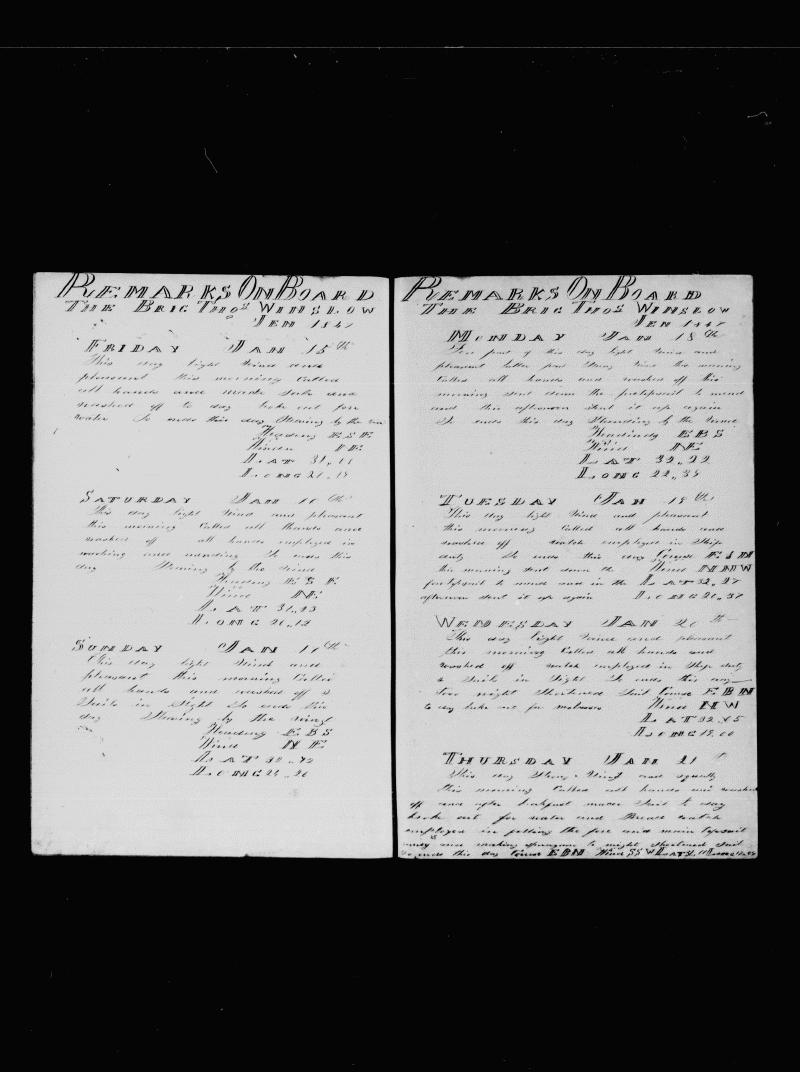 REMARKS ON BOARD
THE BRIG THOS WINSLOW
JEN 1847
FRIDAY JAN 15th
This day light wind and
pleasant this morning Called
all hands and made Sale and
washed off to day broke out for
water So ends this day Stearing by the wind
Heading ESE
Wind NE
LAT 31,,11
LONG
SATURDAY JAN 16th
This day light Wind and pleasant
this morning Called all Hands and
washed off all hands employed in
working and mending So ends this
day Stearing by the Wind
Heading ESE
Wind NE
LAT 31,,23
LONG 26,,12
SUNDAY JAN 17th
This day light Wind and
pleasant this morning Called
all hands and washed off 2
Sails in Sight So ends this
day Stearing by the Wind
Heading EBS
Wind NE
LAT
LONG
REMARKS ON BOARD
THE BRIG THOS WINSLOW
JEN 1847
MONDAY JAN 18th
Fore part of this day light Wind and
pleasant latter part Strong Wind this morning
Called all hands and washed off this
morning sent down the foretopsail to mend
and this afternoon Sent it up again
So ends this day Stearing by the Wind
Heading EBS
Wind NE
LAT 32,,22
LONG 22,,38
TUESDAY JAN 19th
This day light Wind and pleasant
this morning Called all hands and
washed off watch employed in Ship
duty So ends this day Course
this morning sent down the Wind NNW
foretopsail to mend and in the LAT 32,,27
afternoon sent it up again LONG 20,,37
WEDESDAY JAN 20th
This day light Wind and pleasant
this morning Called all hands and
washed off watch employed in Ship duty
2 Sails in Sight So ends this day
Fore night Shortened Sail Course EBN
to day broke out for molasses Wind NW
LAT 32,,45
LONG 19,,00
THURSDAY JAN 21
This day Strong Wind and squally
this morning Called all hands and washed
off and after brakfast made Sail to day
broke out for water and Bread watch
employed in fitting the fore and main topsail
and making to night Shortened Sail
So ends this day Course EBN Wind SSW